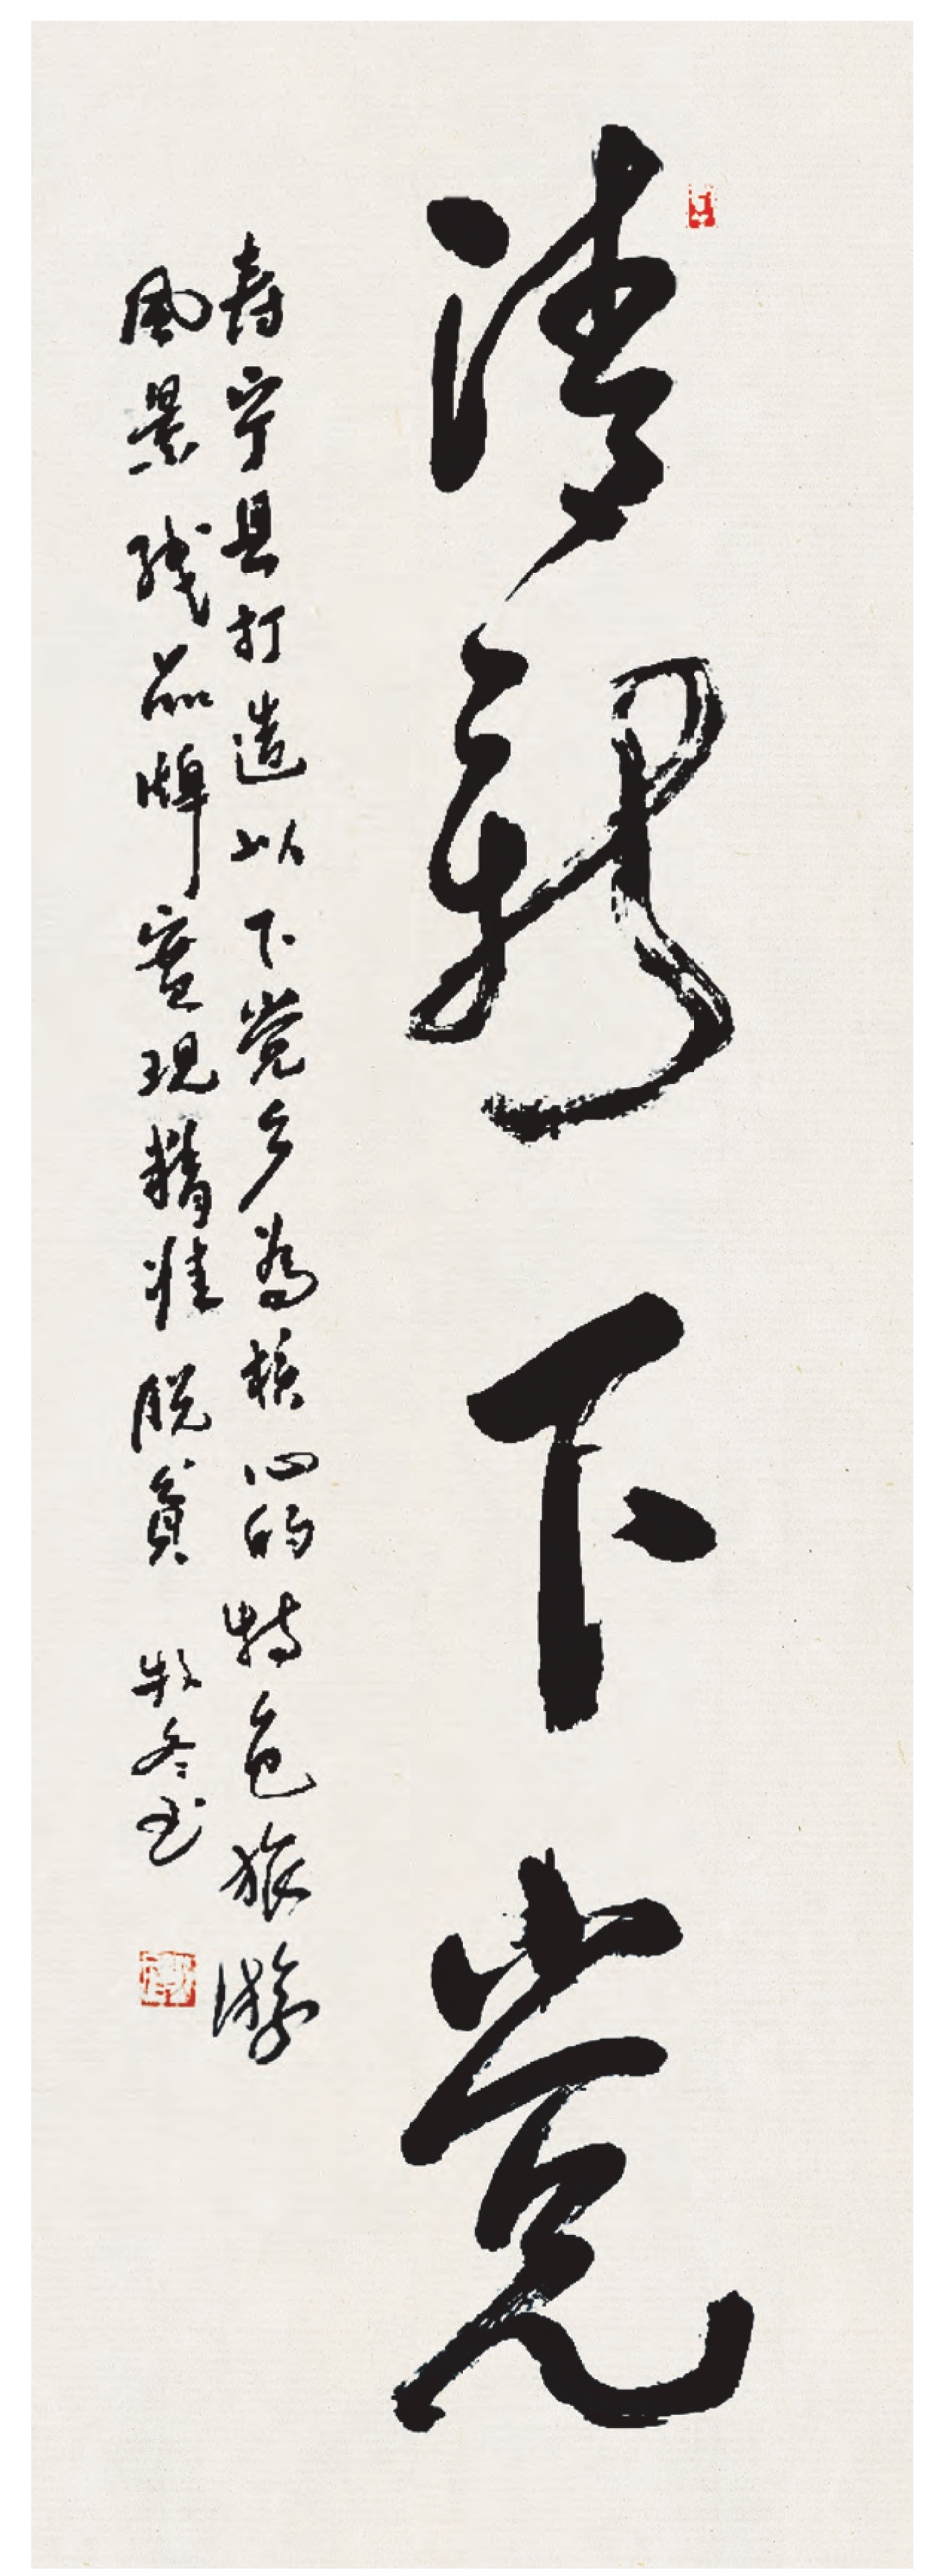 清新下党
寿宁县打造以下党乡为核心的特色旅游
风景线品牌实现精准脱贫 冬书